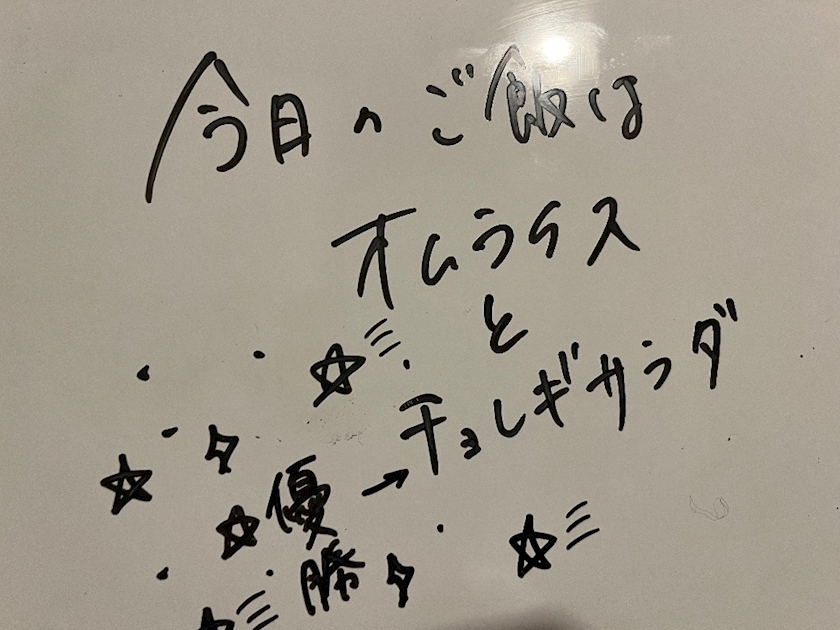 今日のご飯は
オムライス
と
チョレギサラダ
優 →
勝